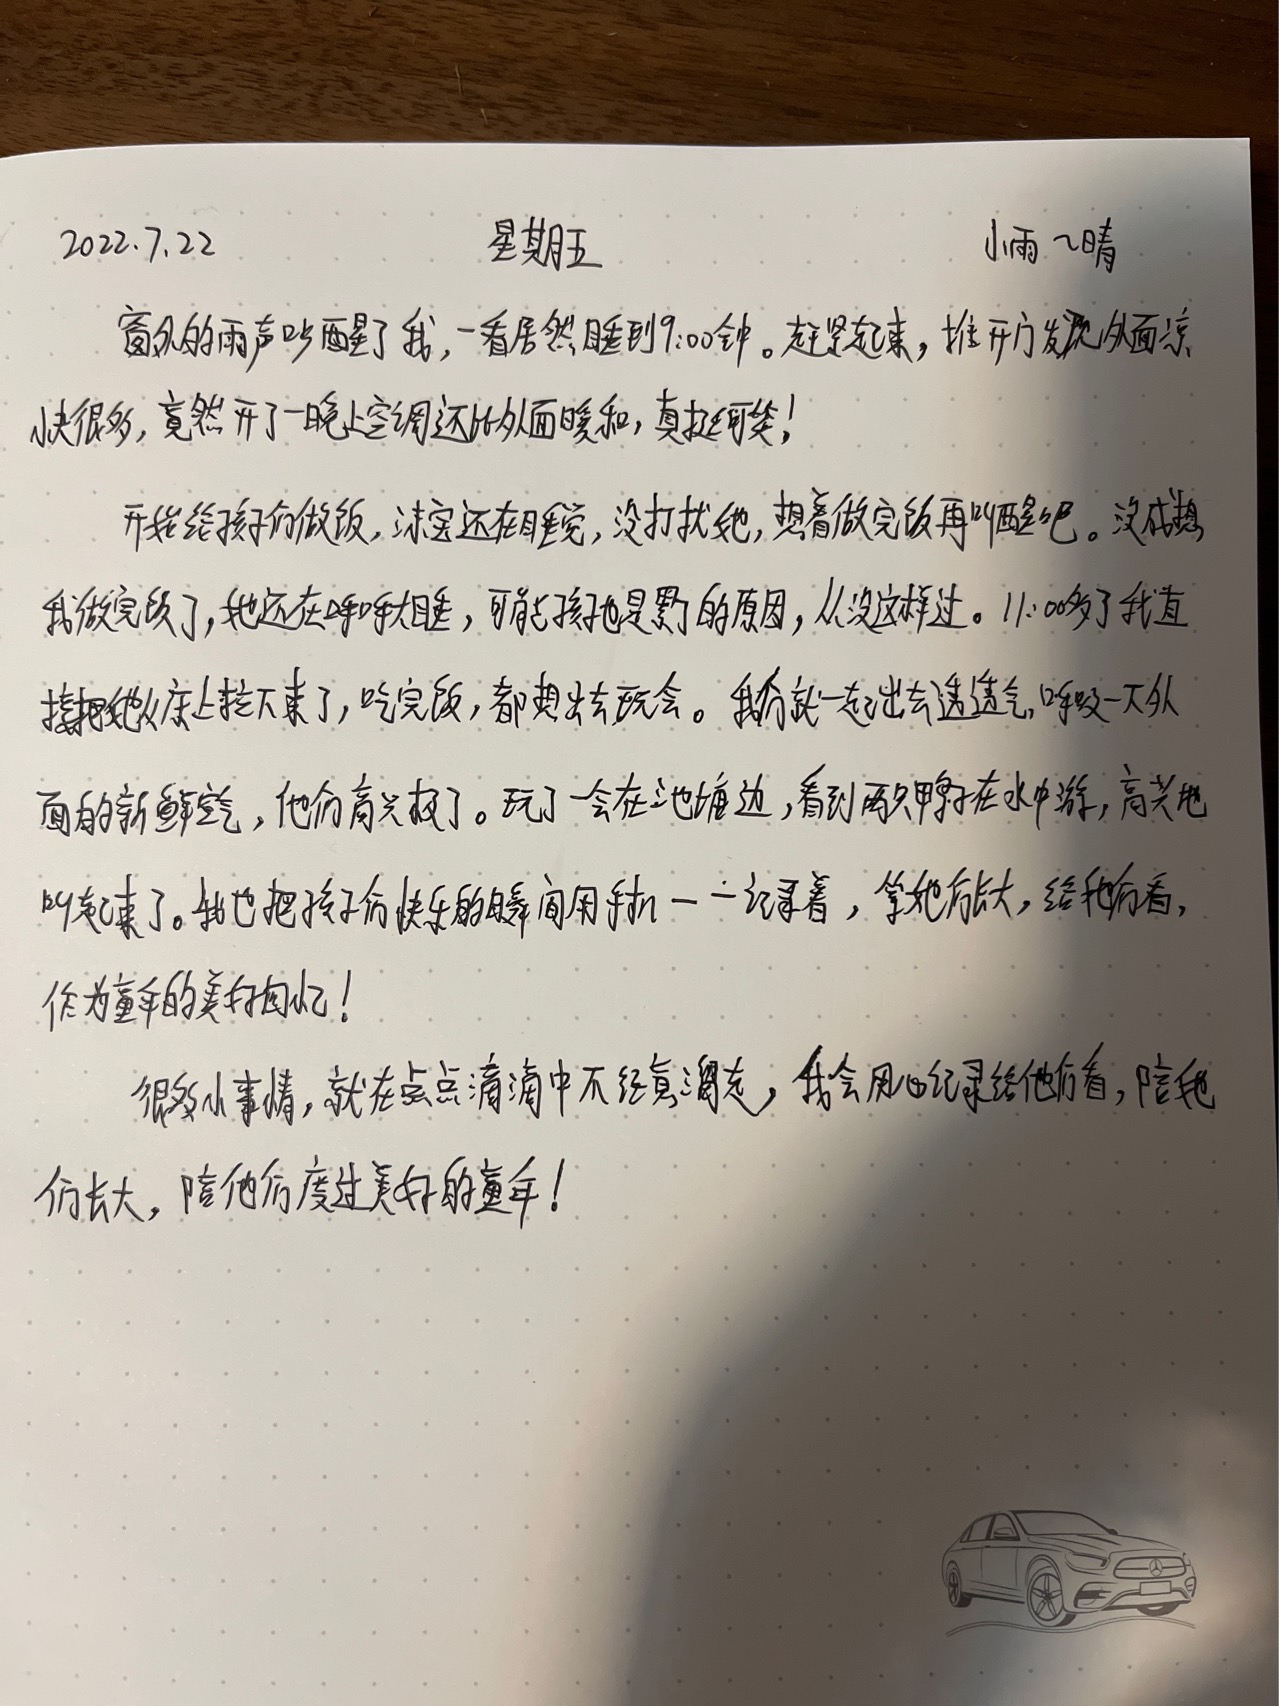 2022.7.22 星期五 小雨~晴
窗外的雨声吵醒了我，一看居然睡到9:00钟。赶紧起来，推开门发现外面凉
快很多，竟然开了一晚上空调还比外面暖和，真挺可笑！
开始给孩子们做饭，沐宝还在睡觉，没打扰她，想着做完饭再叫醒吧。没成想
我做完饭了，她还在呼呼大睡，可能孩子也是累了的原因，从没这样过。11:00多了我直
接把她从床上拉下来了，吃完饭，都想出去玩会。我们就一起出去透透气，呼吸一下外
面的新鲜空气，他们高兴极了。玩了一会在池塘边，看到两只鸭子在水中游，高兴地
叫起来了。我也把孩子们快乐的瞬间用手机一一记录着，等她们长大，给她们看，
作为童年的美好回忆！
很多小事情，就在点点滴滴中不经意溜走，我会用心记录给他们看，陪她
们长大，陪他们度过美好的童年！